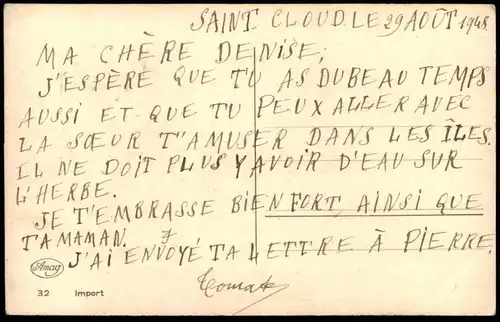 SAINT. CLOUD. LE 29 AOÛT 1948.
MA CHÈRE DENISE,
J'ESPÈRE QUE TU AS DU BEAU TEMPS
AUSSI ET QUE TU PEUX ALLER AVEC
LA SŒUR T'AMUSER DANS LES ÎLES.
IL NE DOIT PLUS Y AVOIR D'EAU SUR
L'HERBE.
JE T'EMBRASSE BIEN FORT, AINSI QUE
TA MAMAN.
J'AI ENVOYÉ TA LETTRE À PIERRE.
Amag
32 Import